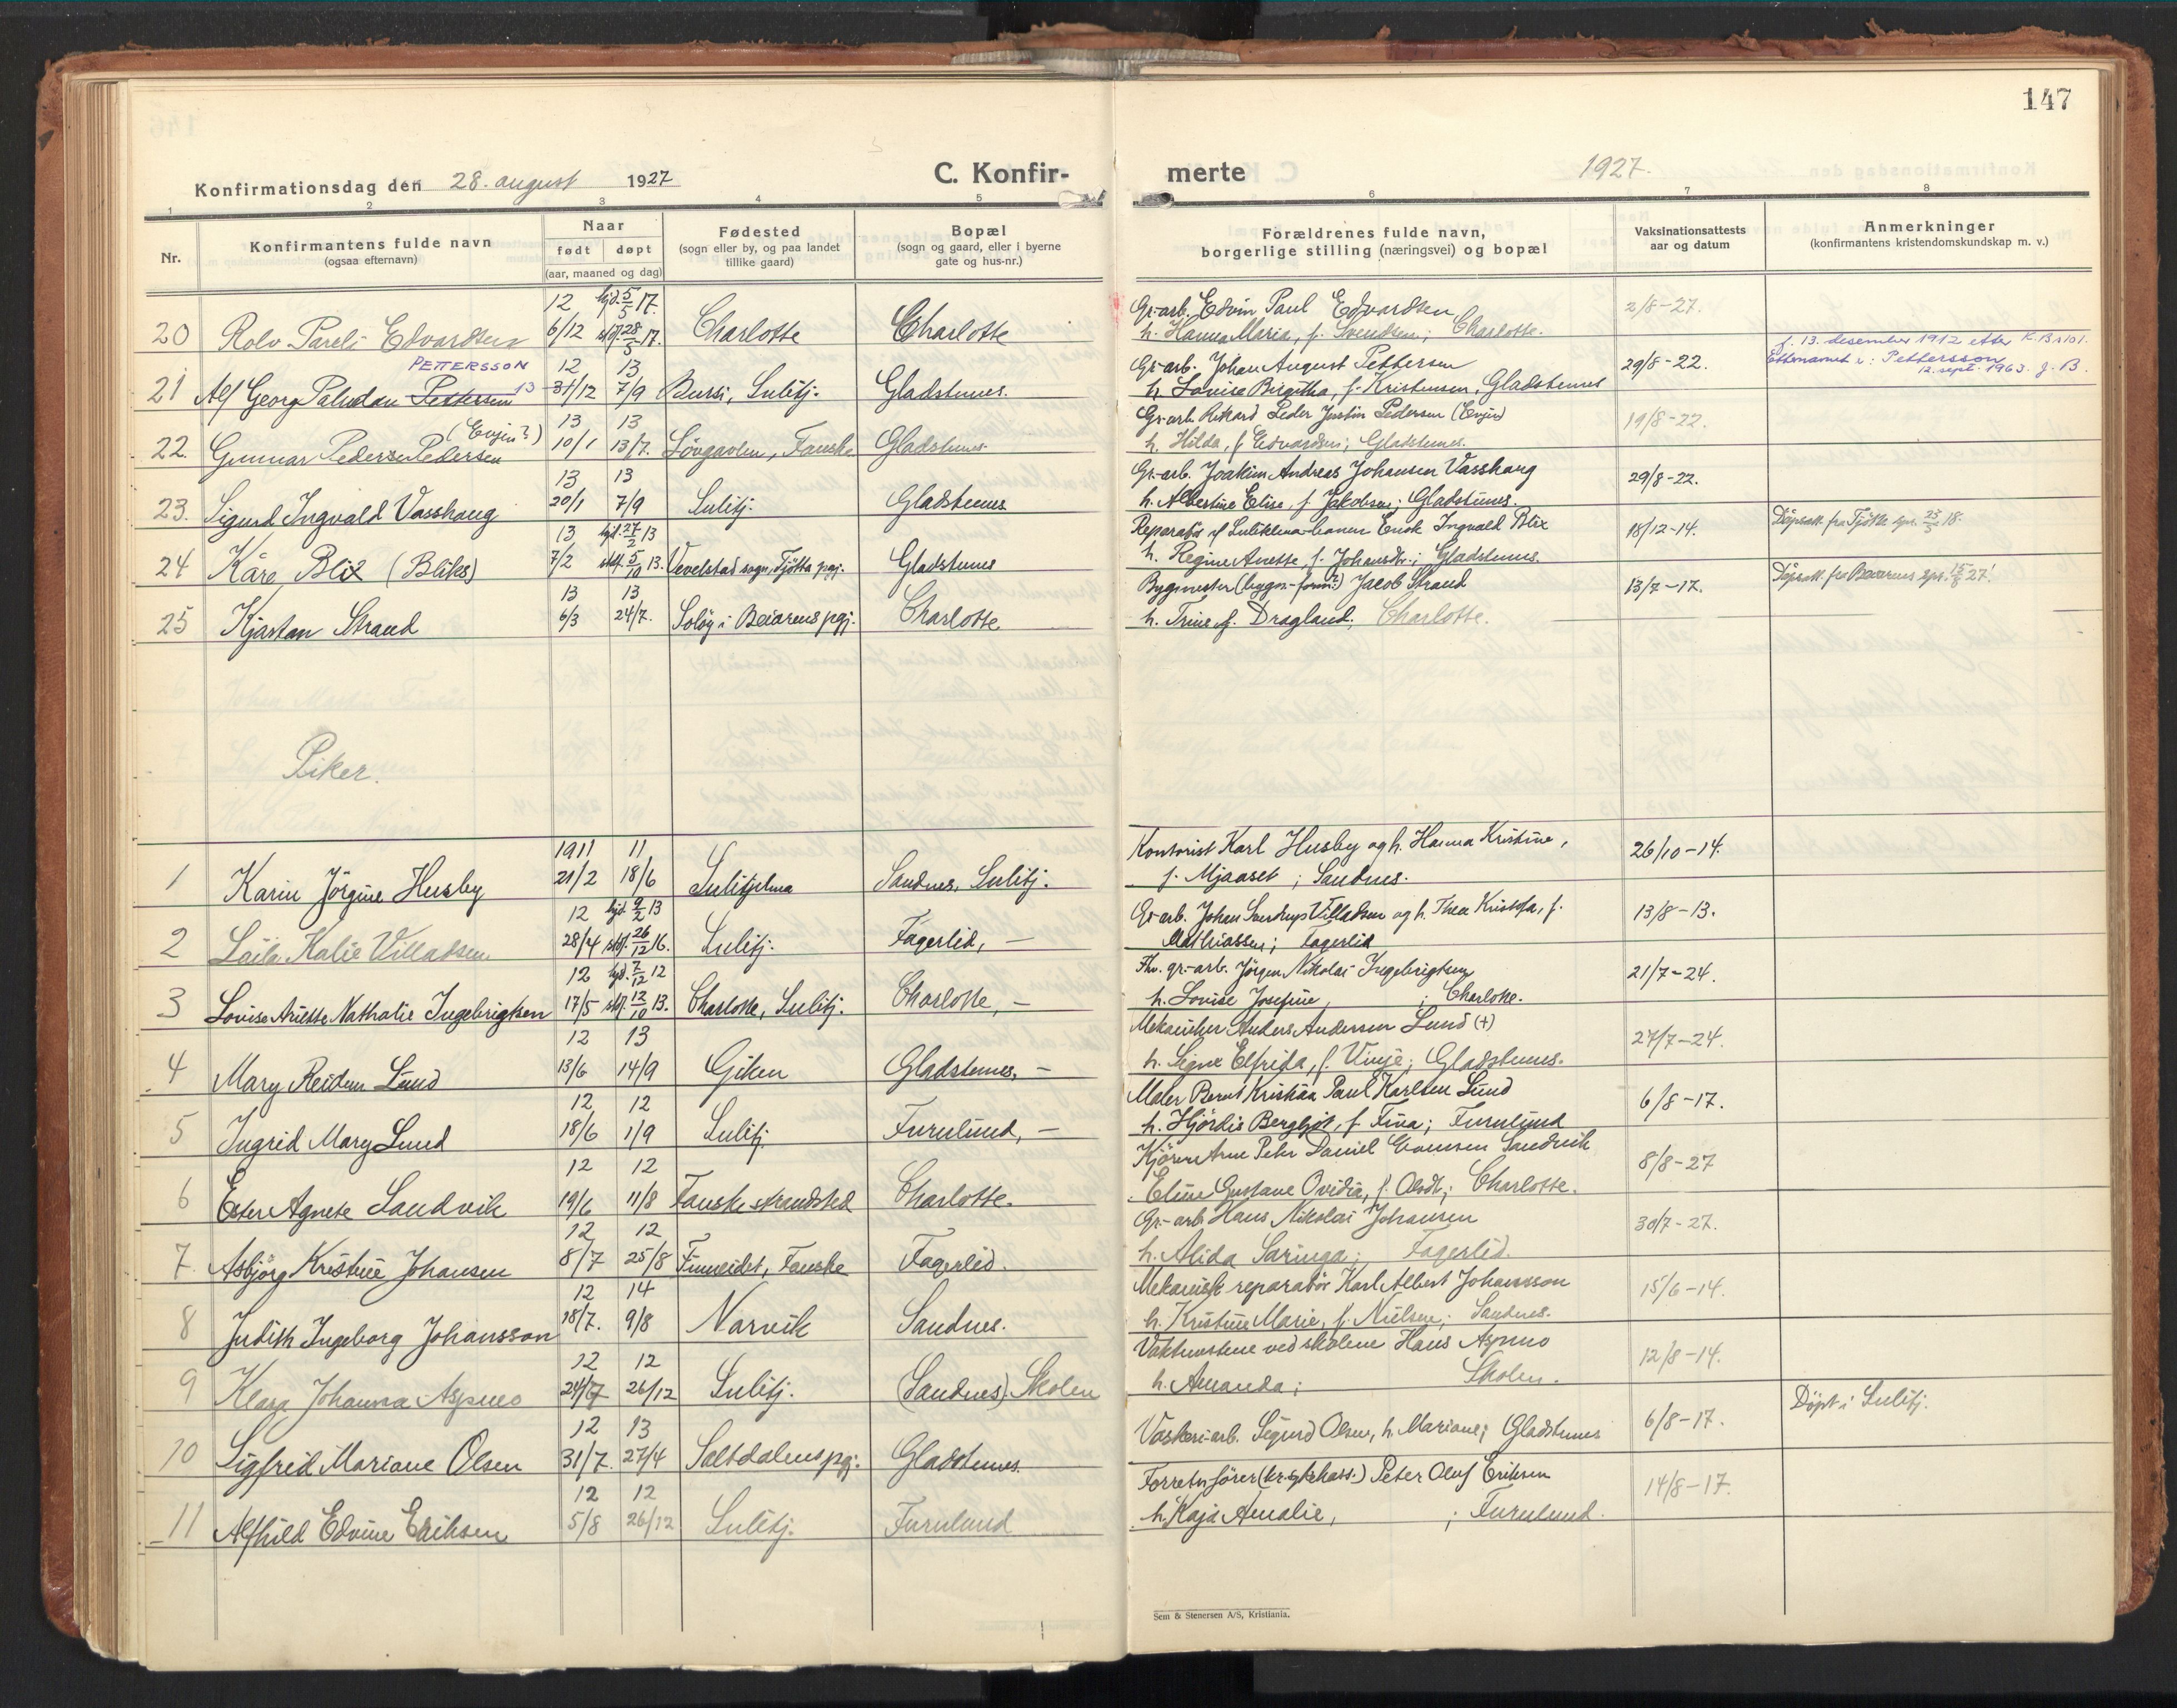 147
Konfirmationsdag den 28. august 1927
C. Konfir-
merte
1927.
1 2 3 4 5 6 7 8
Nr.
Konfirmantens fulde navn
(ogsaa efternavn)
Naar
født døpt
(aar, maaned og dag)
Fødested
(sogn eller by, og paa landet
tillike gaard)
Bopæl
(sogn og gaard, eller i byerne
gate og hus-nr.)
Forældrenes fulde navn,
borgerlige stilling (næringsvei) og bopæl
Vaksinationsattests
aar og datum
Anmerkninger
(konfirmantens kristendomskundskap m. v.)
12 hjd. 5/5 17. Gr.-arb. Edvin Paul Edvardsen 2/8-27.
20 Rolv Pareli Edvardsen 6/12 stf. 28/5 17. Charlotte Charlotte h. Hanna Maria, f. Svendsen; Charlotte.
PETTERSSON 12 13 Gr.-arb. Johan August Pettersen 29/8-22. f. 13. desember 1912 etter K.B.s 101.
21 Alf Georg Paludan Pettersen 13 31/12 7/9 Bursi, Sulitj. Gladstunes. h. Lovise Birgitha, f. Kristensen, Gladstunes Etternavnet er: Pettersson
12. sept. 1963. J. B.
(Evjen?) 13 13 Gr.-arb. Rikard Peder Justin Pedersen (Evjen) 19/8-22.
22. Gunnar Peder Pedersen 10/1 13/7. Lövgavlen, Fauske Gladstunes. h. Hilda, f. Edvardsen; Gladstunes.
13 13 Gr.-arb. Joakim Andreas Johansen Vasshaug 29/8-22.
23. Sigurd Ingvald Vasshaug 20/1 7/9 Sulitj. Gladstunes h. Albertine Elise, f. Jakobsen; Gladstunes.
13 hjd. 27/2 13 Reparatör v/ Sulitelma-banen Enok Ingvald Blix 18/12-14. Döpsatt. fra Tjötta spr. 23/5 18.
24 Kåre Blix (Bliks) 7/2 stf. 5/10 13. Vevelstad sogn, Tjötta pgj. Gladstunes h. Regine Anette, f. Johansdtr.; Gladstunes.
13 13 Bygmester (bygn.-form?) Jacob Strand 13/7-17. Döpsatt. fra Beiarens spr. 15/8 27!
25 Kjartan Strand 6/3 24/7. Solöy i Beiarens pgj. Charlotte h. Trine f. Dragland. Charlotte.
Piker.
1911 11 Kontorist Karl Husby og h. Hanna Kristine, 26/10-14.
1 Karin Jörgine Husby 21/2 18/6 Sulitjelma Sandnes, Sulitj. f. Mjaaset; Sandnes.
12 hjd. 9/2 13 Gr-arb. Johan Sverdrup Villadsen og h. Thea Kristofa, f. 13/8-13.
2 Laila Kalie Villadsen 28/4 stf. 26/12 16. Sulitj. Fagerlid, — Mathiassen; Fagerlid
12 hjd. 7/12 12 Fhv. gr.-arb. Jörgen Nikolai Ingebrigtsen 21/7-24.
3 Lovise Anette Nathalie Ingebrigtsen 17/5 stf. 12/10 13. Charlotte, Sulitj. Charlotte, — h. Lovise Josefine, ; Charlotte.
12 13 Mekaniker Anders Andersen Lund (+) 27/7-24.
4 Mary Reidun Lund 13/6 14/9 Giken Gladstunes, — h. Signe Elfrida, f. Vinje; Gladstunes.
12 12 Maler Bernt Kristian Paul Karlsen Lund 6/8-17.
5 Ingrid Mary Lund 18/6 1/9 Sulitj. Furulund, — h. Hjördis Bergljot, f. Fina; Furulund
12 12 Kjörer Arne Peter Daniel Evensen Sandvik 8/8-27
6 Ester Agnete Sandvik 19/6 11/8 Fauske strandsted Charlotte. Eline Gustave Ovidia, f. Olsdt.; Charlotte.
12 12 Gr.-arb Hans Nikolai Johansen 30/7-27.
7. Asbjörg Kristine Johansen 8/7 25/8 Finneidet, Fauske Fagerlid. h. Alida Saringa; Fagerlid.
12 14 Mekanisk reparatör Karl Albert Johansson 15/6-14.
8 Judith Ingeborg Johansson 18/7. 9/8 Narvik Sandnes. h. Kristine Marie, f. Nielsen; Sandnes.
12 12 Vaktmestene ved skolene Hans Aspmo 12/8-14.
9 Klara Johanna Aspmo 24/7 26/12 Sulitj. (Sandnes) Skolen h. Amanda; Skolen.
12 13 Vaskeri-arb. Sigurd Olsen, h. Mariane; Gladstunes 6/8-17. Döpt i Sulitj.
10 Sigfred Mariane Olsen 31/7. 27/4 Saltdalens pgj. Gladstunes.
12 12 Forretn.förer (kr.sykekass.) Peter Oluf Eriksen 14/8-17.
11 Alfhild Edvine Eriksen 5/8 26/12 Sulitj. Furulund h. Kaja Amalie, ; Furulund.
Sem & Stenersen A/S, Kristiania.